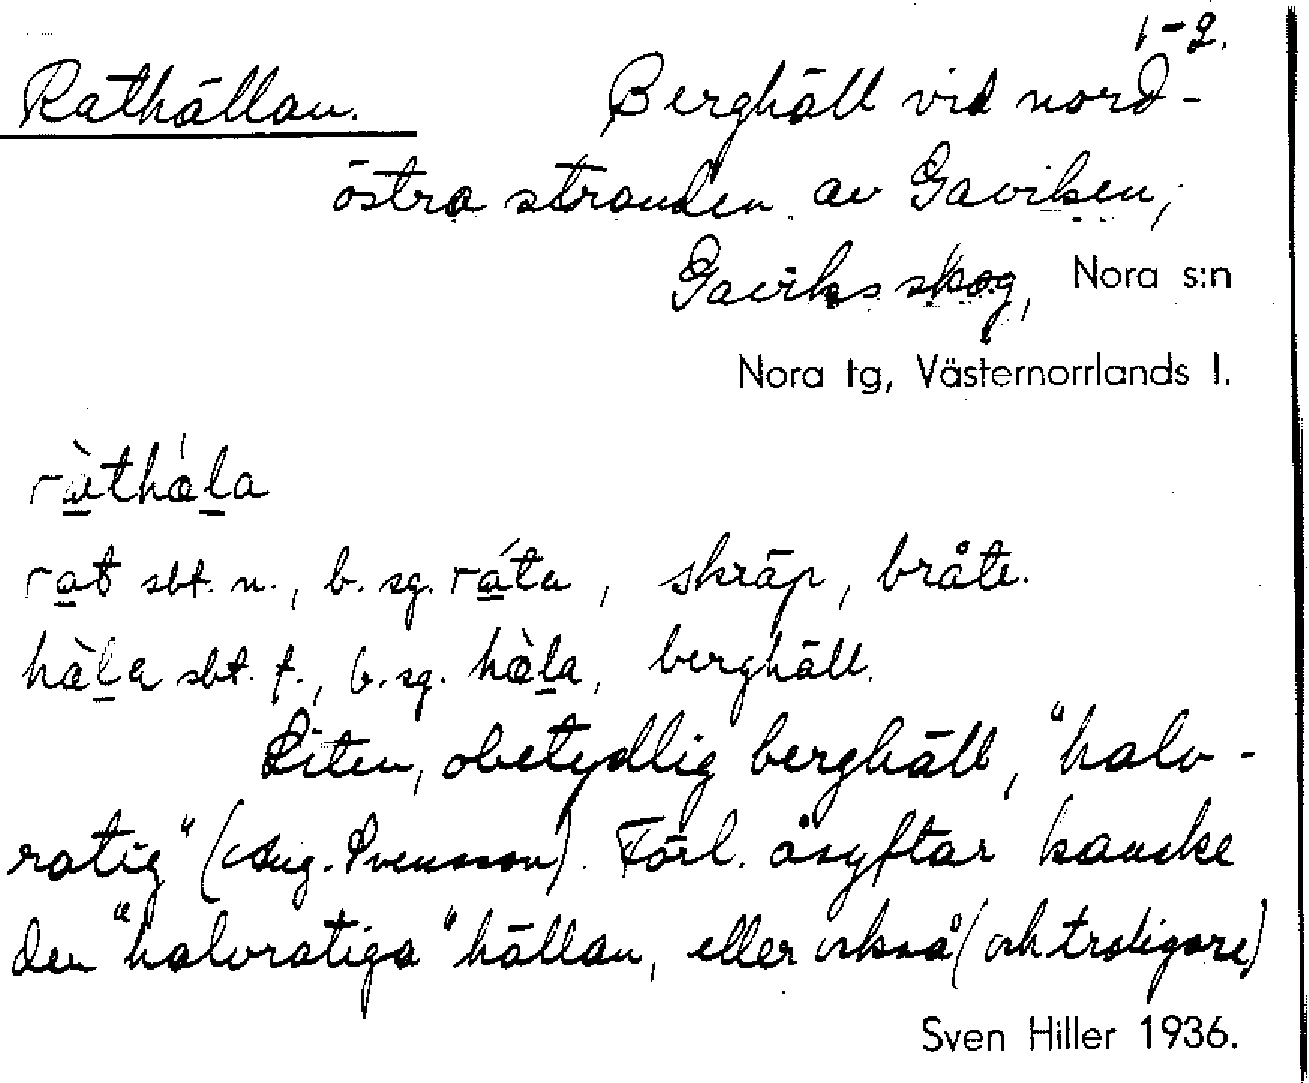 1-2.
Rathällan. Berghäll vid nord-
östra stranden av Gaviken,
Gaviks skog, Nora s:n
Nora tg, Västernorrlands l.
ràthála
rat sbt. n., b. sg. ráta, skräp, bråte.
hàla sbt. f., b. sg. hàla, berghäll.
Liten, obetydlig berghäll, "halv-
ratig" (Aug. Svensson). Förl. åsyftar kanske
den "halvratiga" hällan, eller också (och troligare)
Sven Hiller 1936.